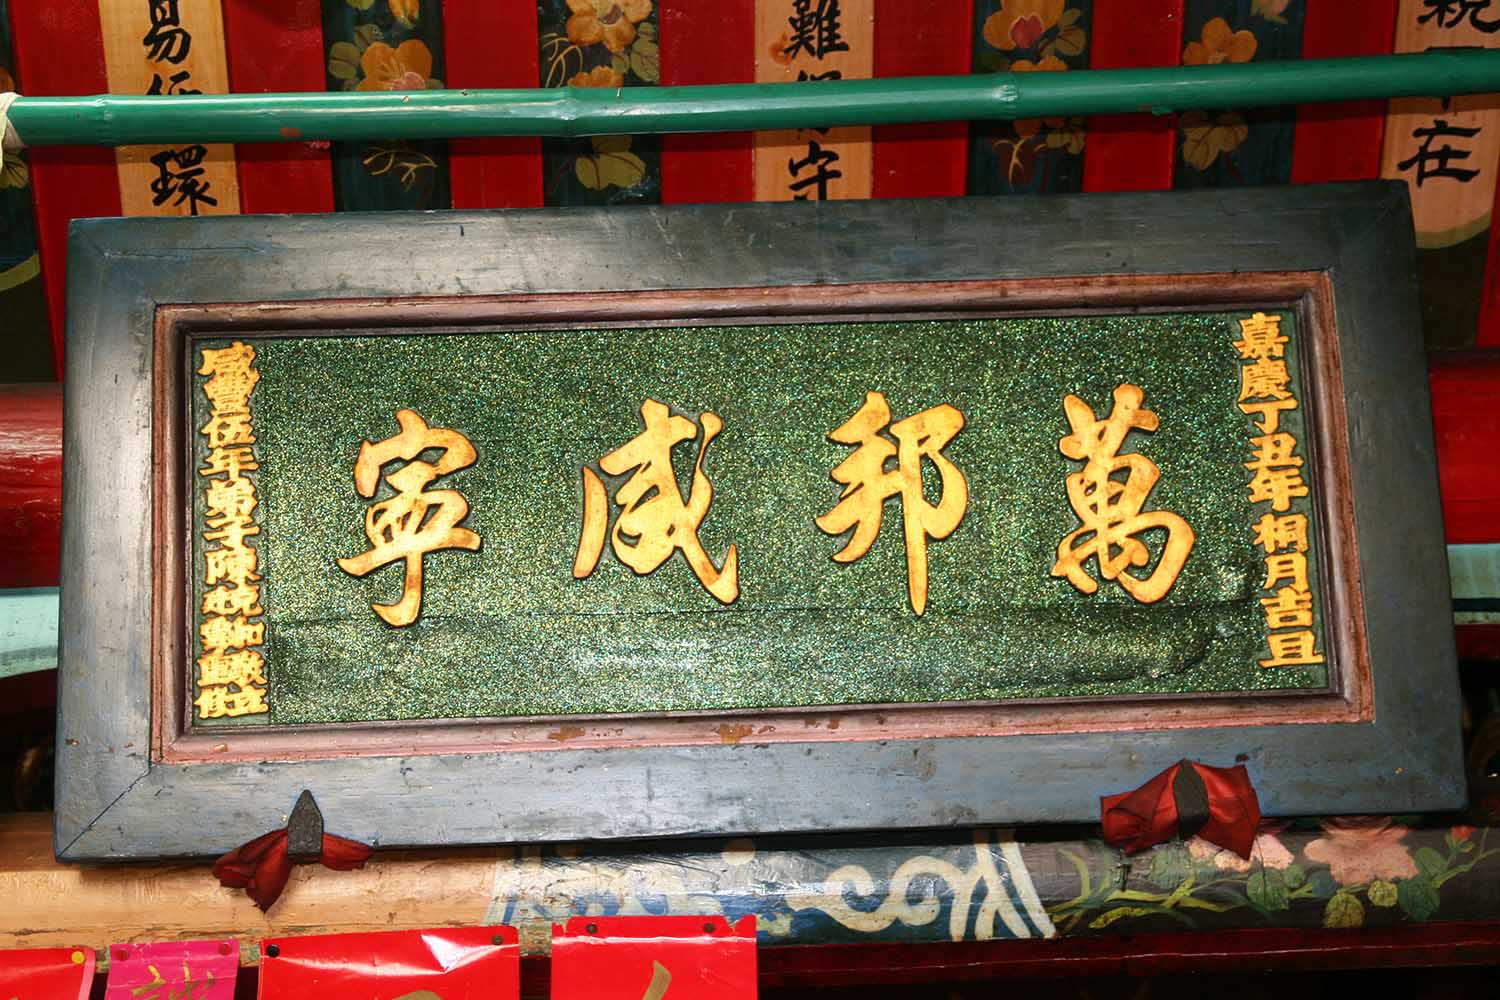 易
環
難
守
在
嘉慶丁丑年桐月吉旦
萬邦咸寧
咸豐伍年弟子陳
誠